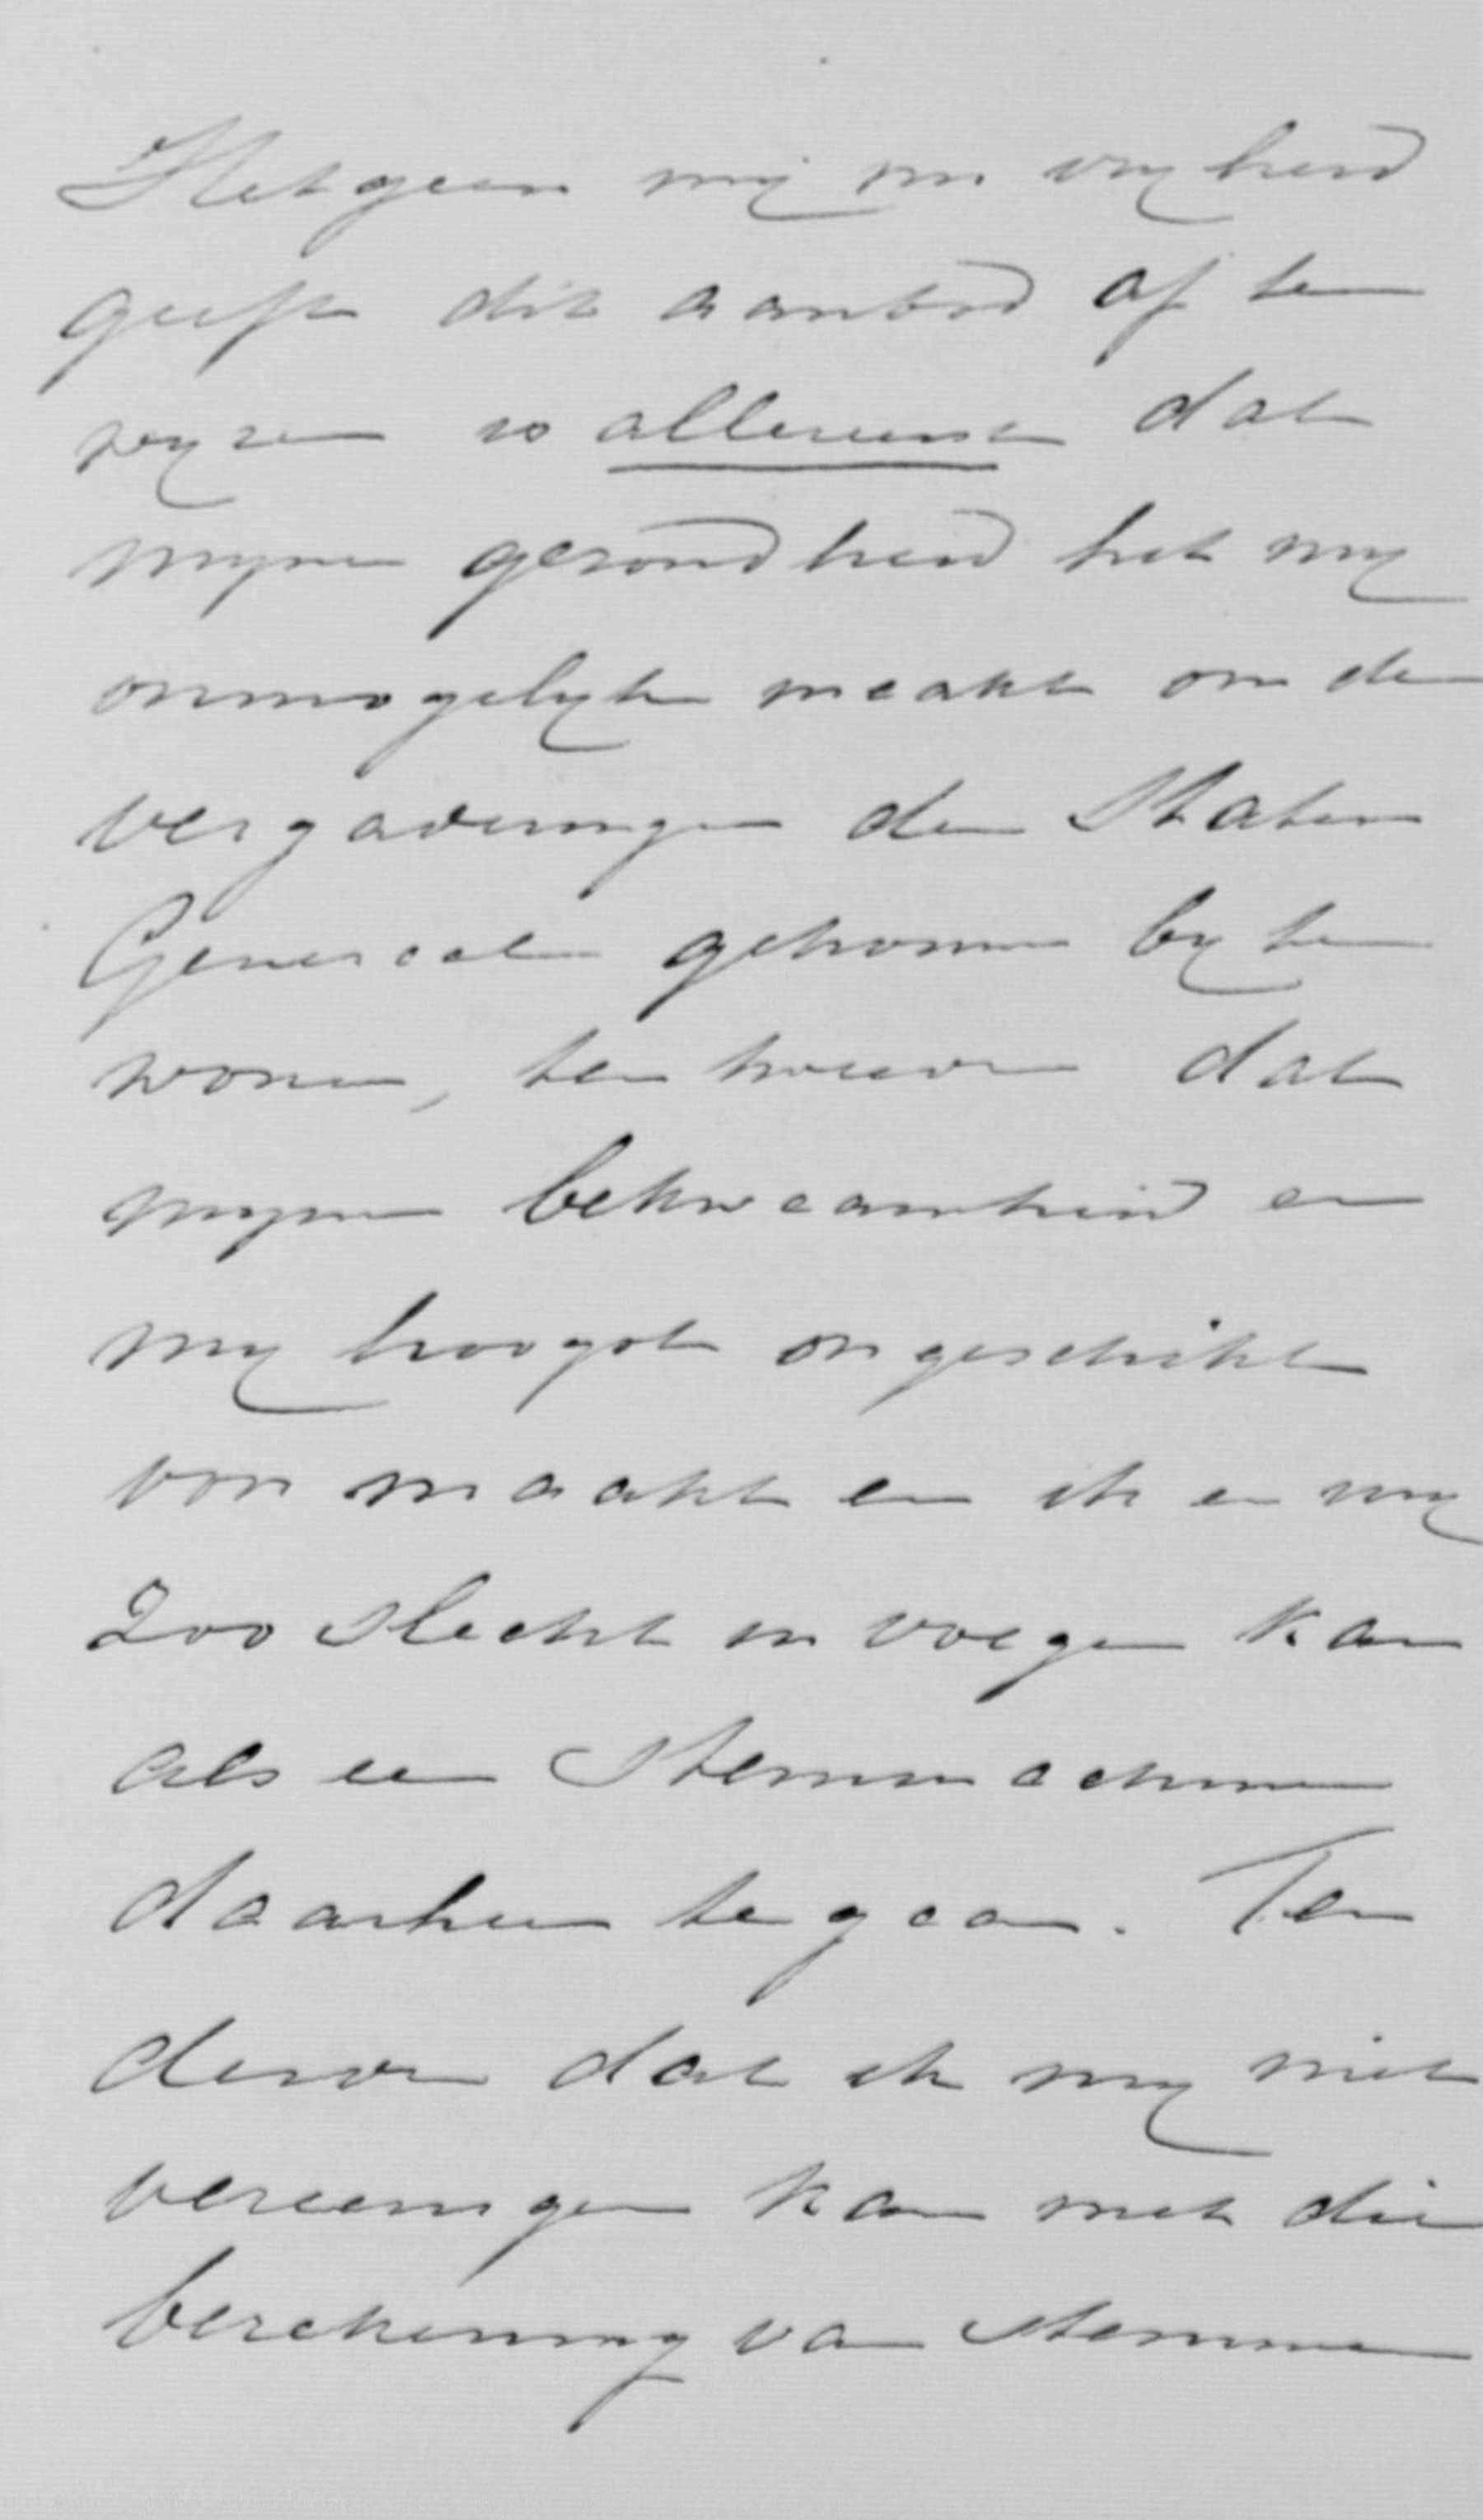 Hetgeen mij nu vryheid
geeft dit aanbod af te
wyzen is allereerst dat
myne gezondheid het my
onmogelyk maakt om de
vergaderingen der Staten
Generaal getrouw by te
wonen, ten tweeden dat
myne bekwaamheid er
my hoogst ongeschikt
voor maakt en ik er my
Zoo slecht in voegen kan
als een Stemmachine
daarheen te gaan. Ten
derden dat ik my niet
vereenigen kan met die
berekening van stemmen